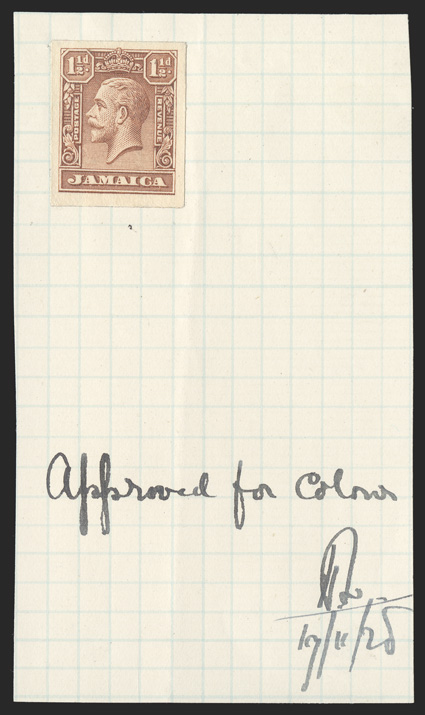 1½d. 1½d.
POSTAGE REVENUE
JAMAICA
Approved for Colour
17/11/28